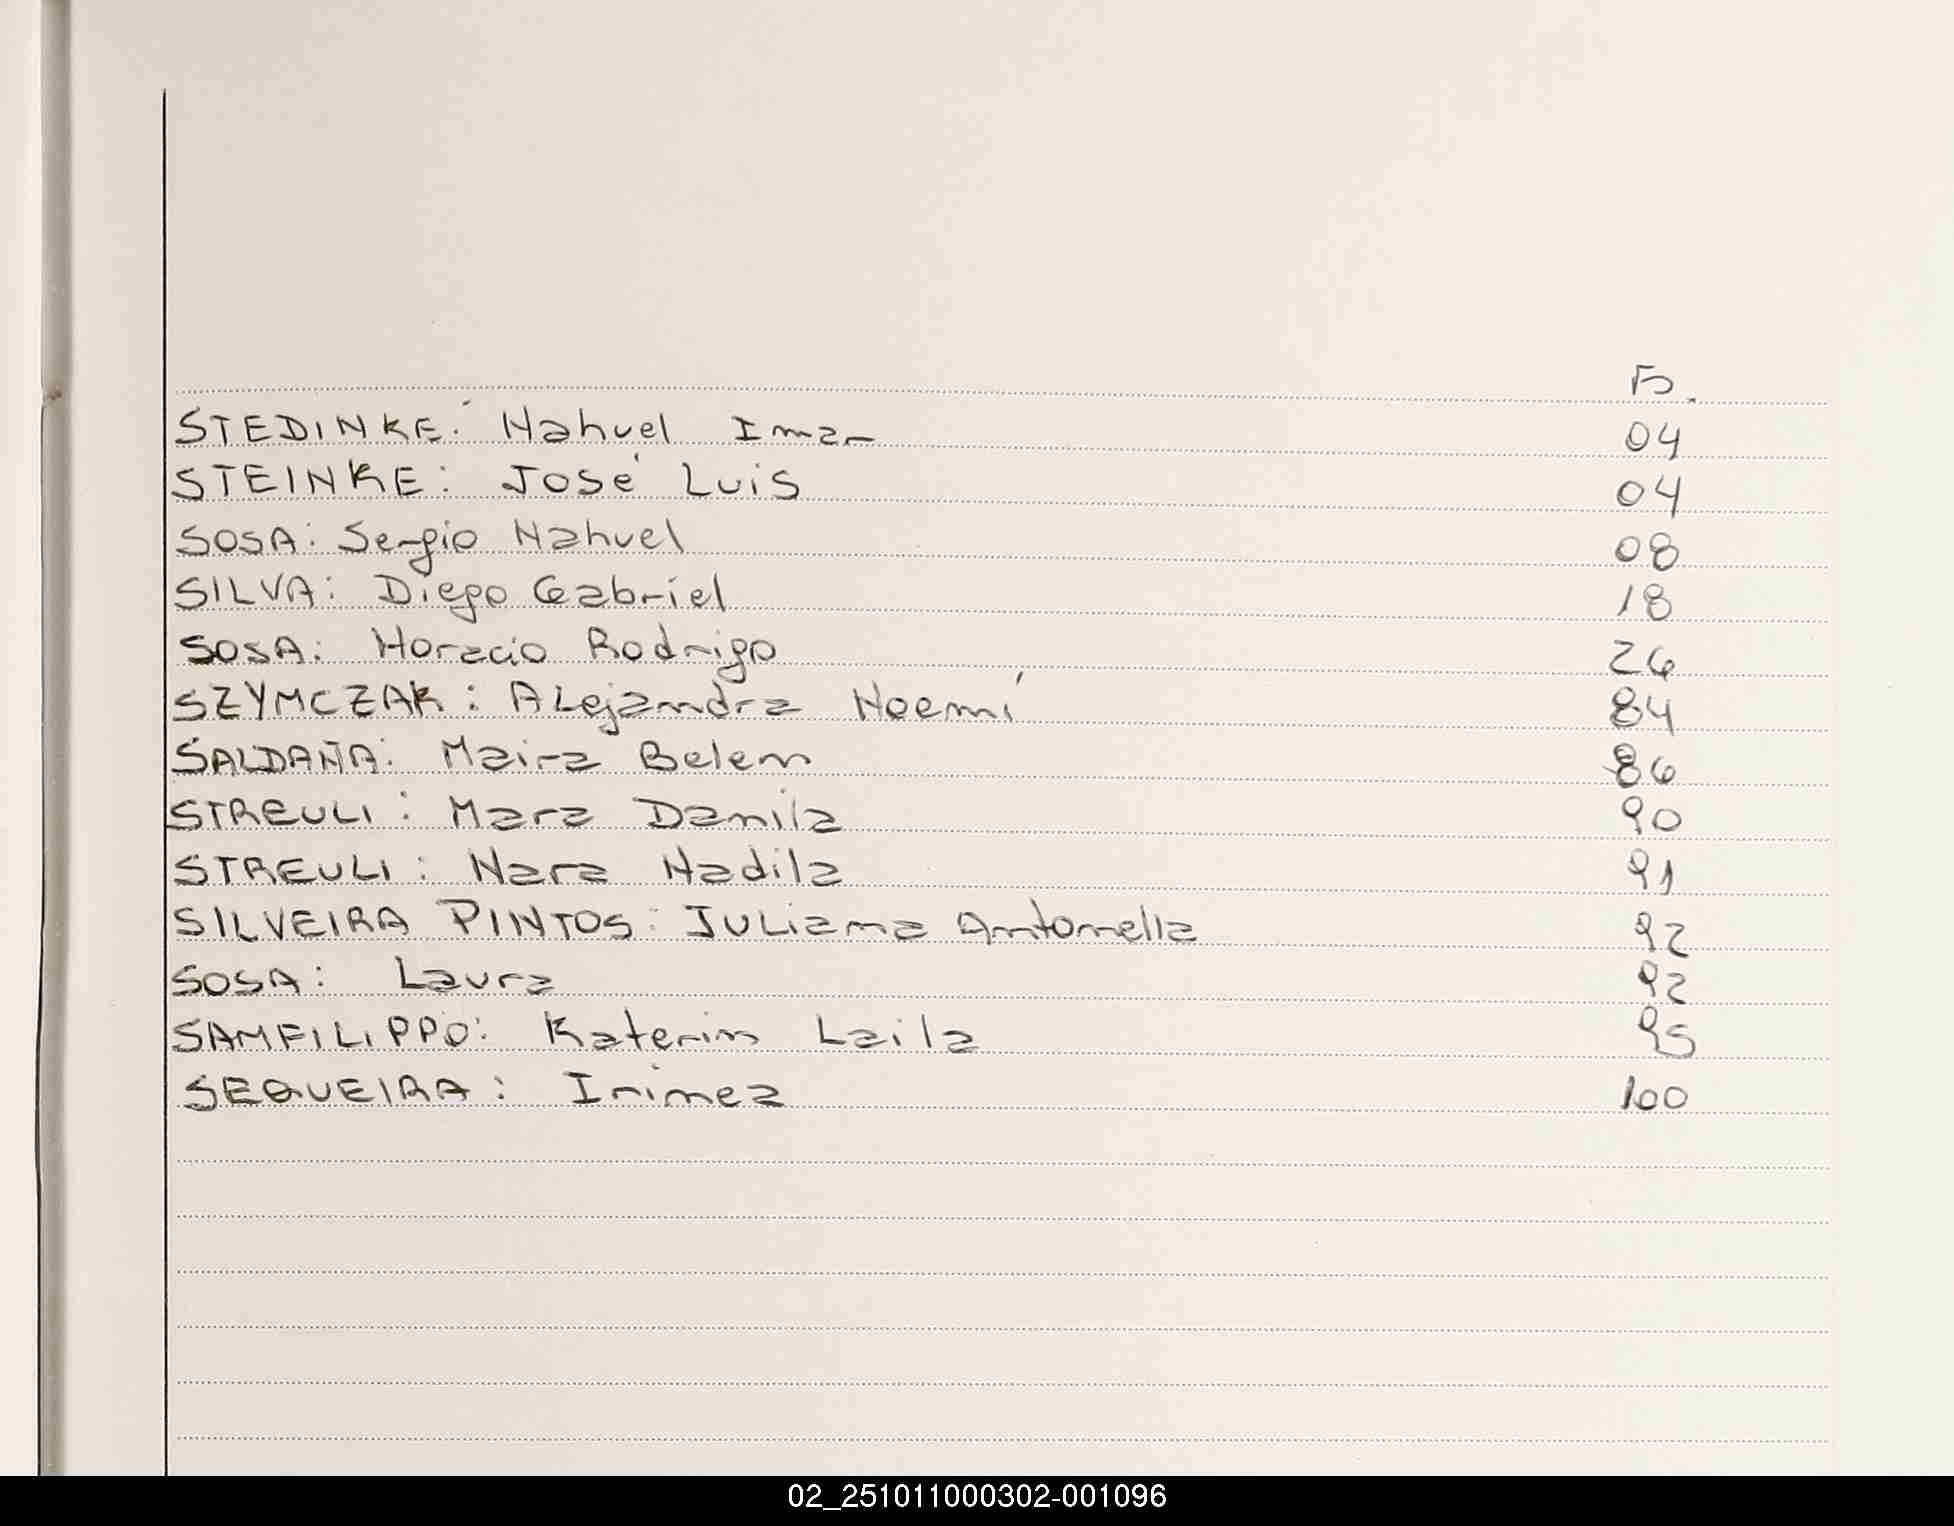 Fo.
STEDINKE: Nahuel Iman 04
STEINKE: José Luis 04
SOSA: Sergio Nahuel 08
SILVA: Diego Gabriel 18
SOSA: Horacio Rodrigo 26
SZYMCZAK: Alejandra Noemí 84
SALDAÑA: Maira Belem 86
STREULI: Mara Danila 90
STREULI: Nara Nadila 91
SILVEIRA PINTOS: Juliana Antonella 92
SOSA: Laura 92
SAMFILIPPO: Katerin Laila 95
SEQUEIRA: Irinea 100
02_251011000302-001096